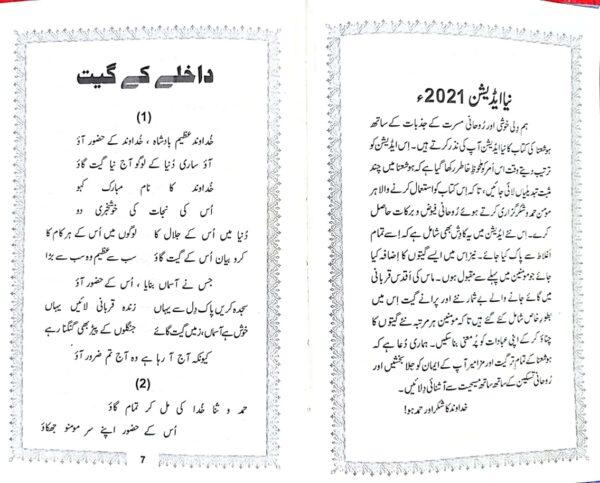 نیا ایڈیشن 2021ء
ہم دلی خوشی اور رُوحانی مسرت کے جذبات کے ساتھ
ہوشعنا کی کتاب کا نیا ایڈیشن آپ کی نذر کرتے ہیں۔ اِس ایڈیشن کو
ترتیب دیتے وقت اس اَمر کو ملحوظِ خاطر رکھا گیا ہے کہ ہوشعنا میں چند
مثبت تبدیلیاں لائی جائیں، تا کہ اِس کتاب کو استعمال کرنے والا ہر
مومن حمد و شکر گزاری کرتے ہوئے رُوحانی فیوض و برکات حاصل
کرے۔ اس نئے ایڈیشن میں یہ کاوِش بھی شامل ہے کہ اِسے تمام
اغلاط سے پاک کیا جائے۔ نیز اس میں ایسے گیتوں کا اِضافہ کیا
جائے جو مومنین میں پہلے سے مقبول ہوں۔ ماس کی اَقدس قربانی
میں گائے جانے والے بے شمار نئے اور پرانے گیت اِس میں
بطورِ خاص شامل کئے گئے ہیں تاکہ مومنین ہر مرتبہ نئے گیتوں کا
چناؤ کر کے اپنی عبادات کو پُر معنی بنا سکیں۔ ہماری دُعا ہے کہ
ہوشعنا کے تمام تر گیت اور مزامیر آپ کے ایمان کو جلا بخشیں اور
رُوحانی تسکین کے ساتھ ساتھ مسیحیت سے آشنائی دِلائیں۔
خداوند کا شکر اور حمد ہو!
داخلے کے گیت
(1)
خُداوند عظیم بادشاہ ، خُداوند کے حضور آؤ
آؤ ساری دُنیا کے لوگو آج نیا گیت گاؤ
خُداوند کا نام مبارک کہو
اُس کی نجات کی خوشخبری دو
دُنیا میں اُس کے جلال کا لوگوں میں اُس کے ہر کام کا
کرو بیان اُس کے گیت گاؤ سب سے عظیم وہ سب سے بڑا
جس نے آسماں بنایا ، اُس کے حضور آؤ
سجدہ کریں پاک دِل سے یہاں زندہ قربانی لائیں یہاں
خوش ہے آسماں، زمیں گیت گائے جنگلوں کے پیڑ بھی گنگنا رہے
کیونکہ آج آ رہا ہے وہ آج تم ضرور آؤ
(2)
حمد و ثنا خُدا کی مل کر تمام گاؤ
اُس کے حضور اپنے سر مومنو جھکاؤ
7